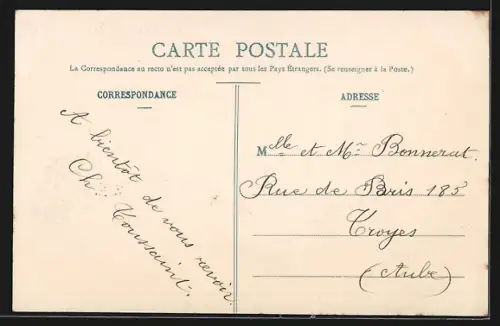 CARTE POSTALE
La Correspondance au recto n'est pas acceptée par tous les Pays Étrangers. (Se renseigner à la Poste.)
CORRESPONDANCE
A bientôt de vous revoir.
Ch. Toussaint.
ADRESSE
Mlle et Mr Bonnerat.
Rue de Paris 185
Troyes
(Aube)